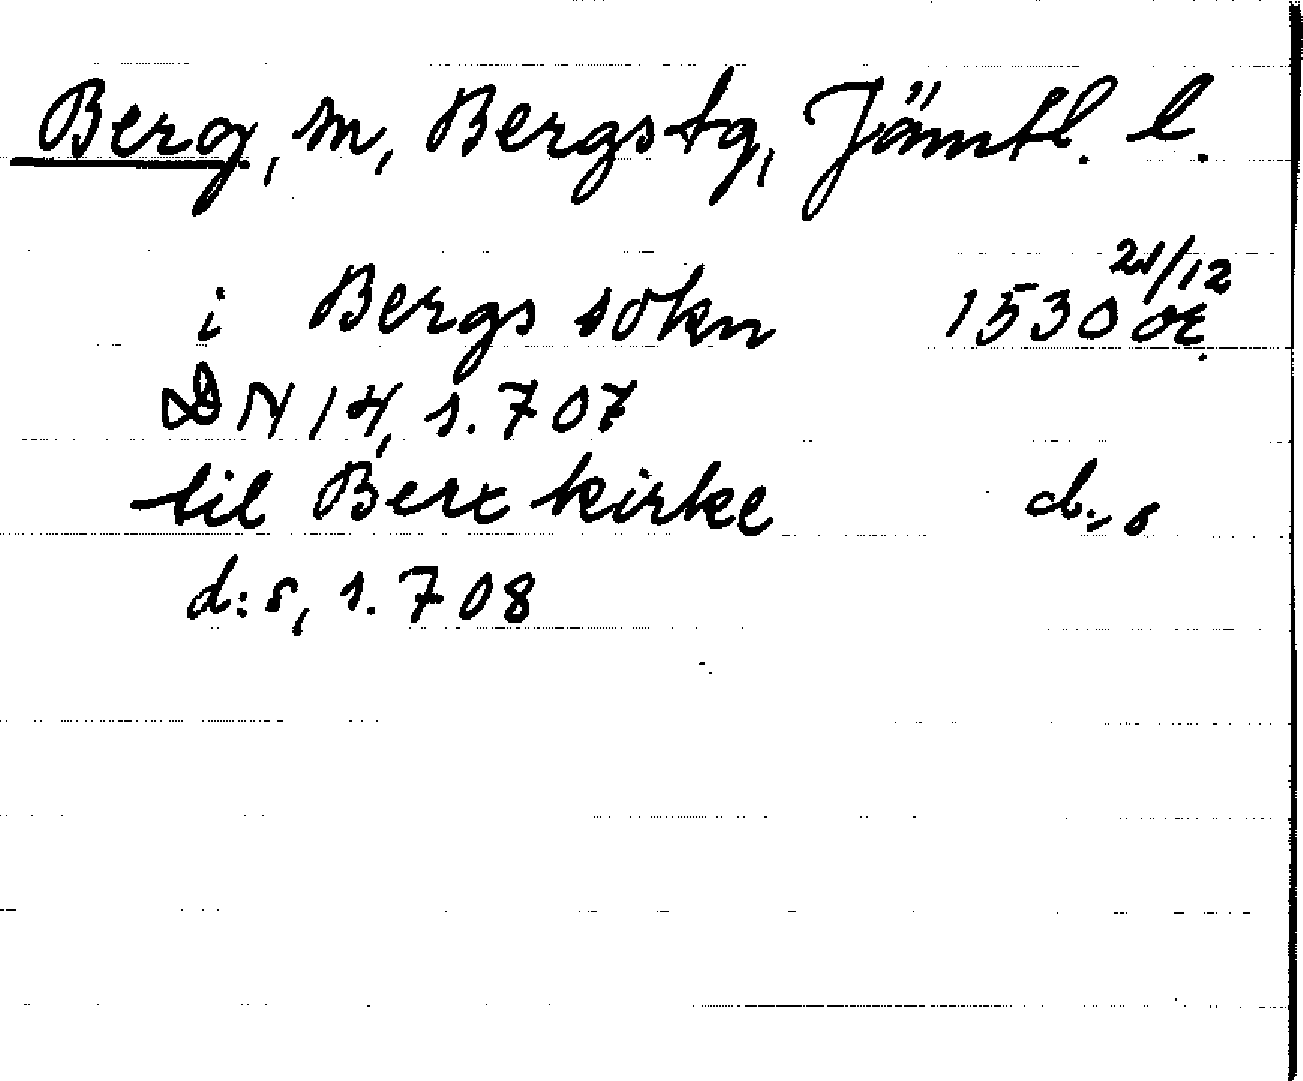 Berg, sn, Bergs tg, Jämtl. l.
i Bergs sokn 1530 21/12 or.
DN 14, s. 707
til Berx kirke d:s
d:s, s. 708